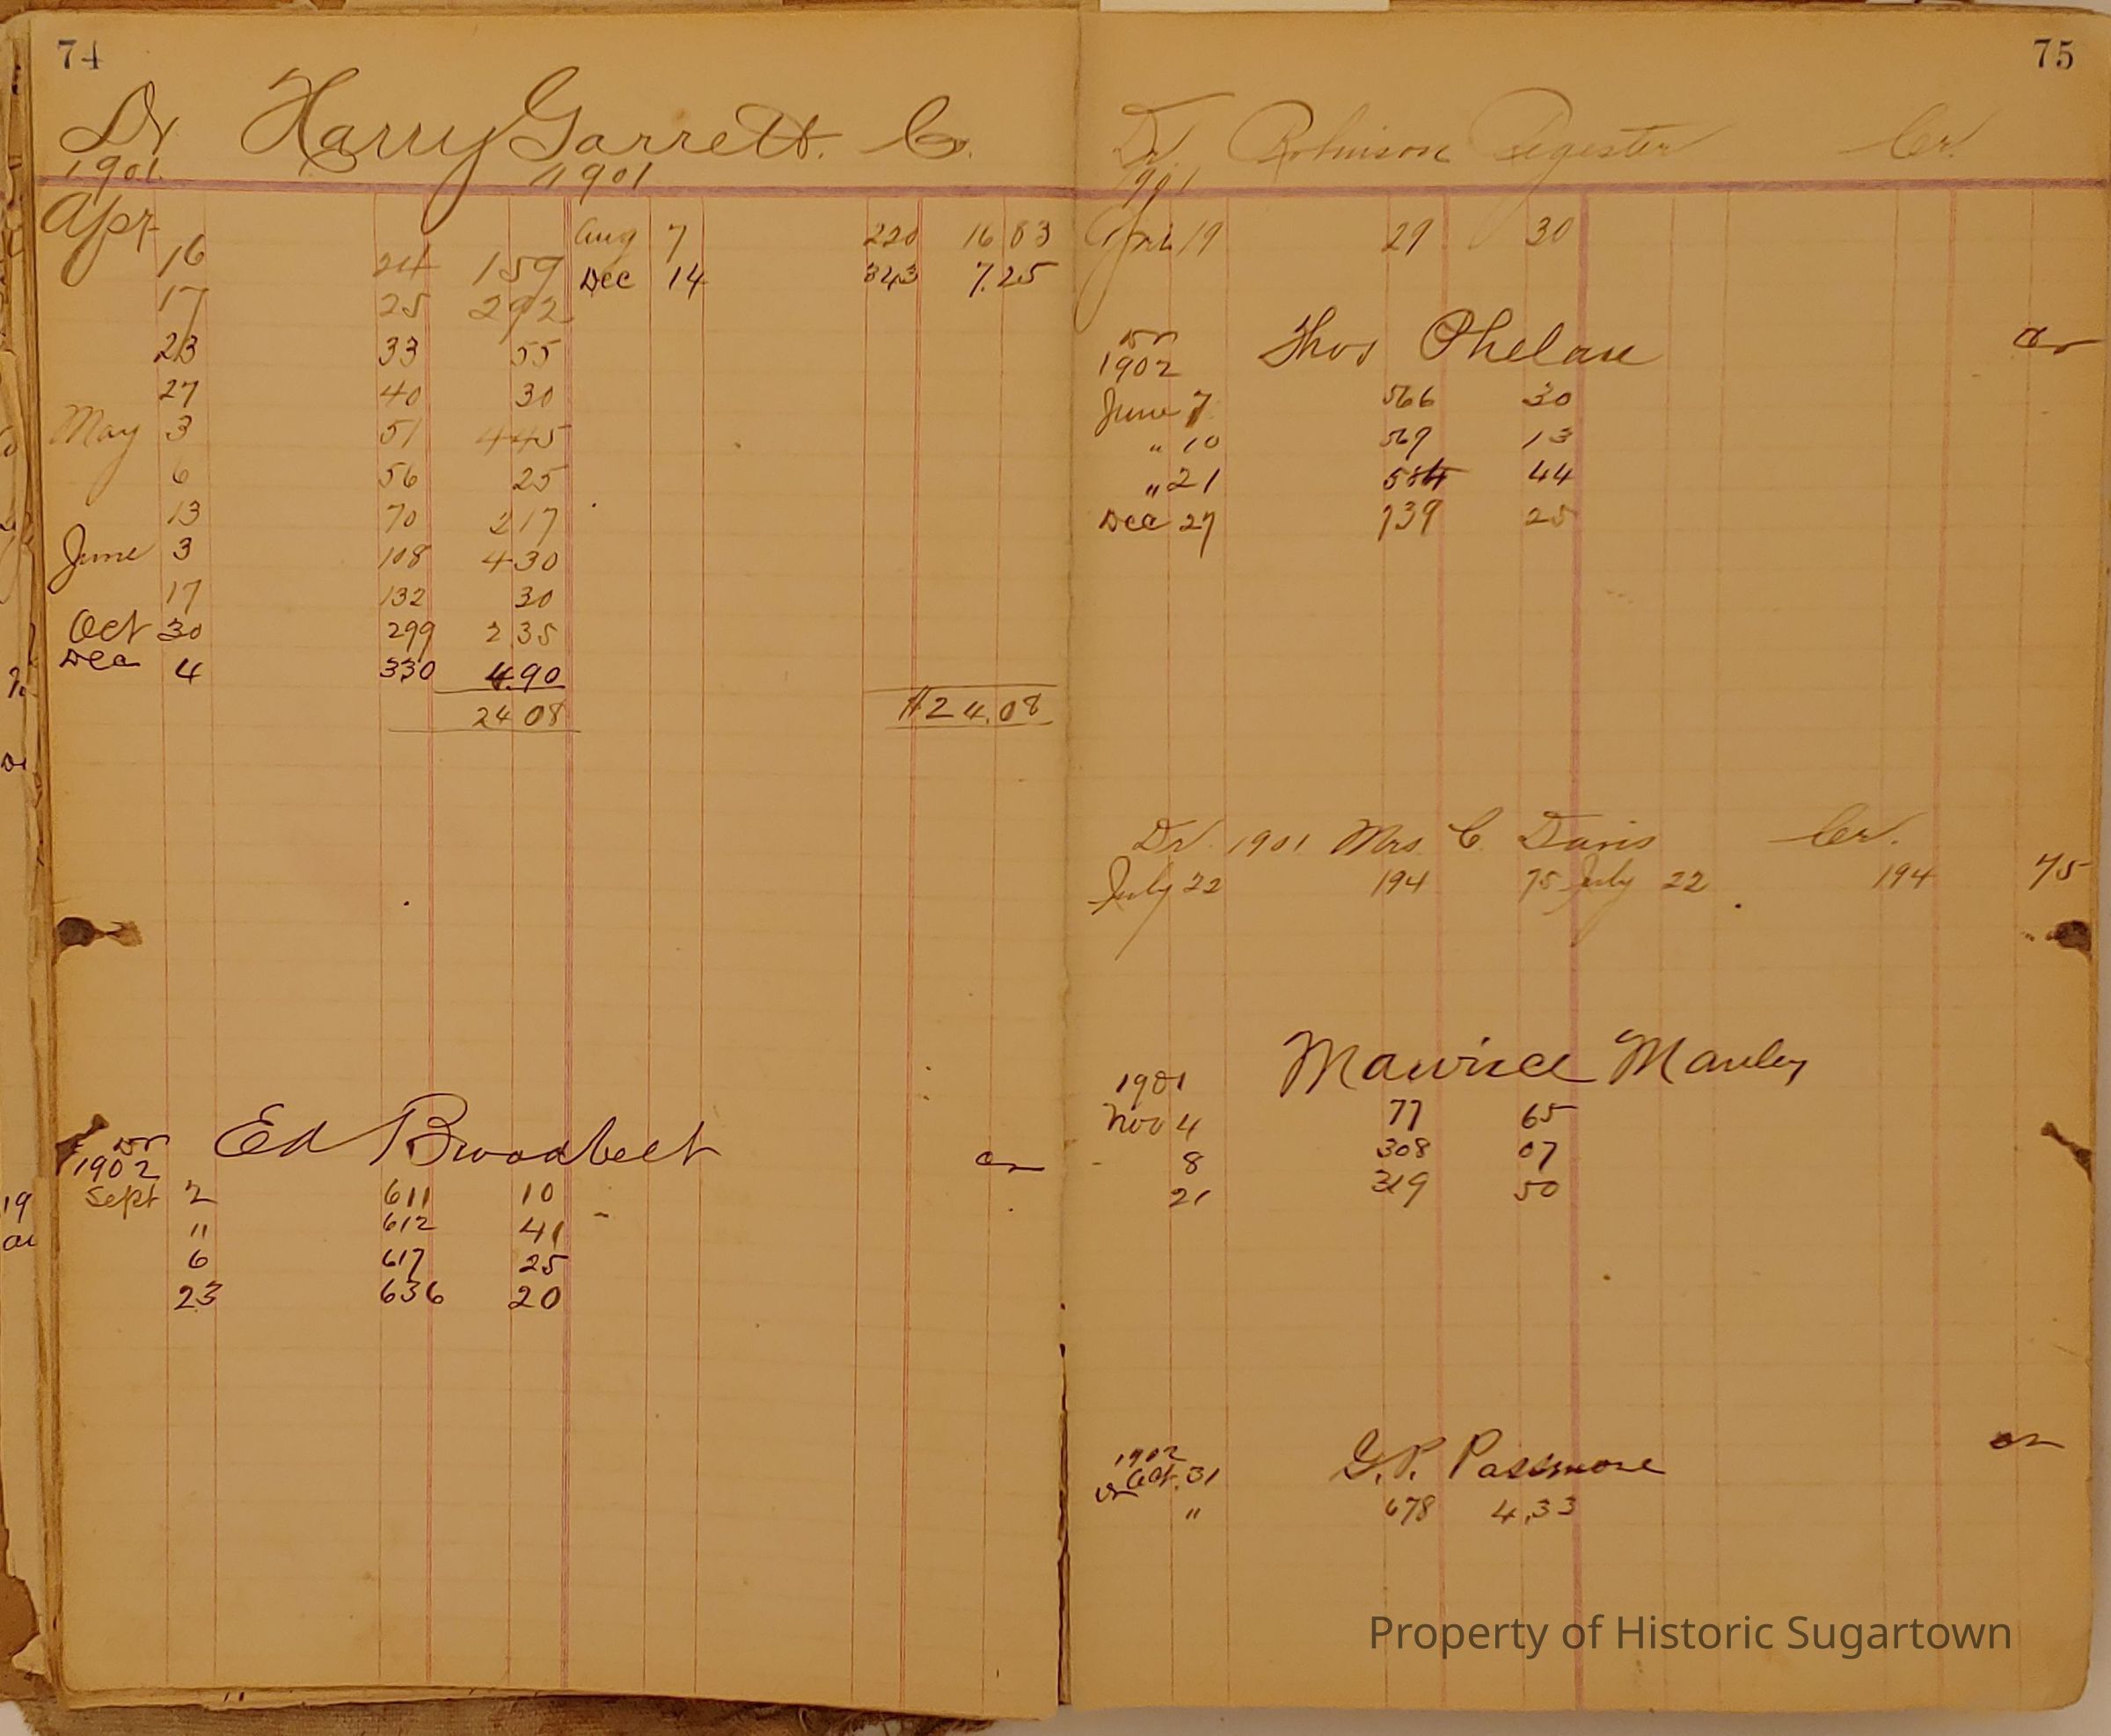 74
Dr Harry Garrett. Cr.
1901. 1901
Apr Aug 7 220 16 83
16 24 1 59 Dec 14 343 7.25
17 25 2 92
23 33 55
27 40 30
May 3 51 4 45
6 56 25
13 70 2 17
June 3 108 4 30
17 132 30
Oct 30 299 2 35
Dec 4 330 4.90
24 08 $24.08
Dr Ed Broadbelt Cr
1902
Sept 2 611 10
" 612 41
6 617 25
23 636 20
75
Dr. Robinson Regester Cr.
1901
Apri 19 29 30
Dr Thos Phelan Cr
1902
June 7 566 30
" 10 569 13
" 21 584 44
Dec 27 739 25
Dr. 1901 Mrs C Davis Cr.
July 22 194 75 July 22 194 75
1901 Maurice Manley
Nov 4 77 65
8 308 07
21 319 50
1902 G.P. Passmore Cr
Dr Oct. 31
" 678 4.33
Property of Historic Sugartown